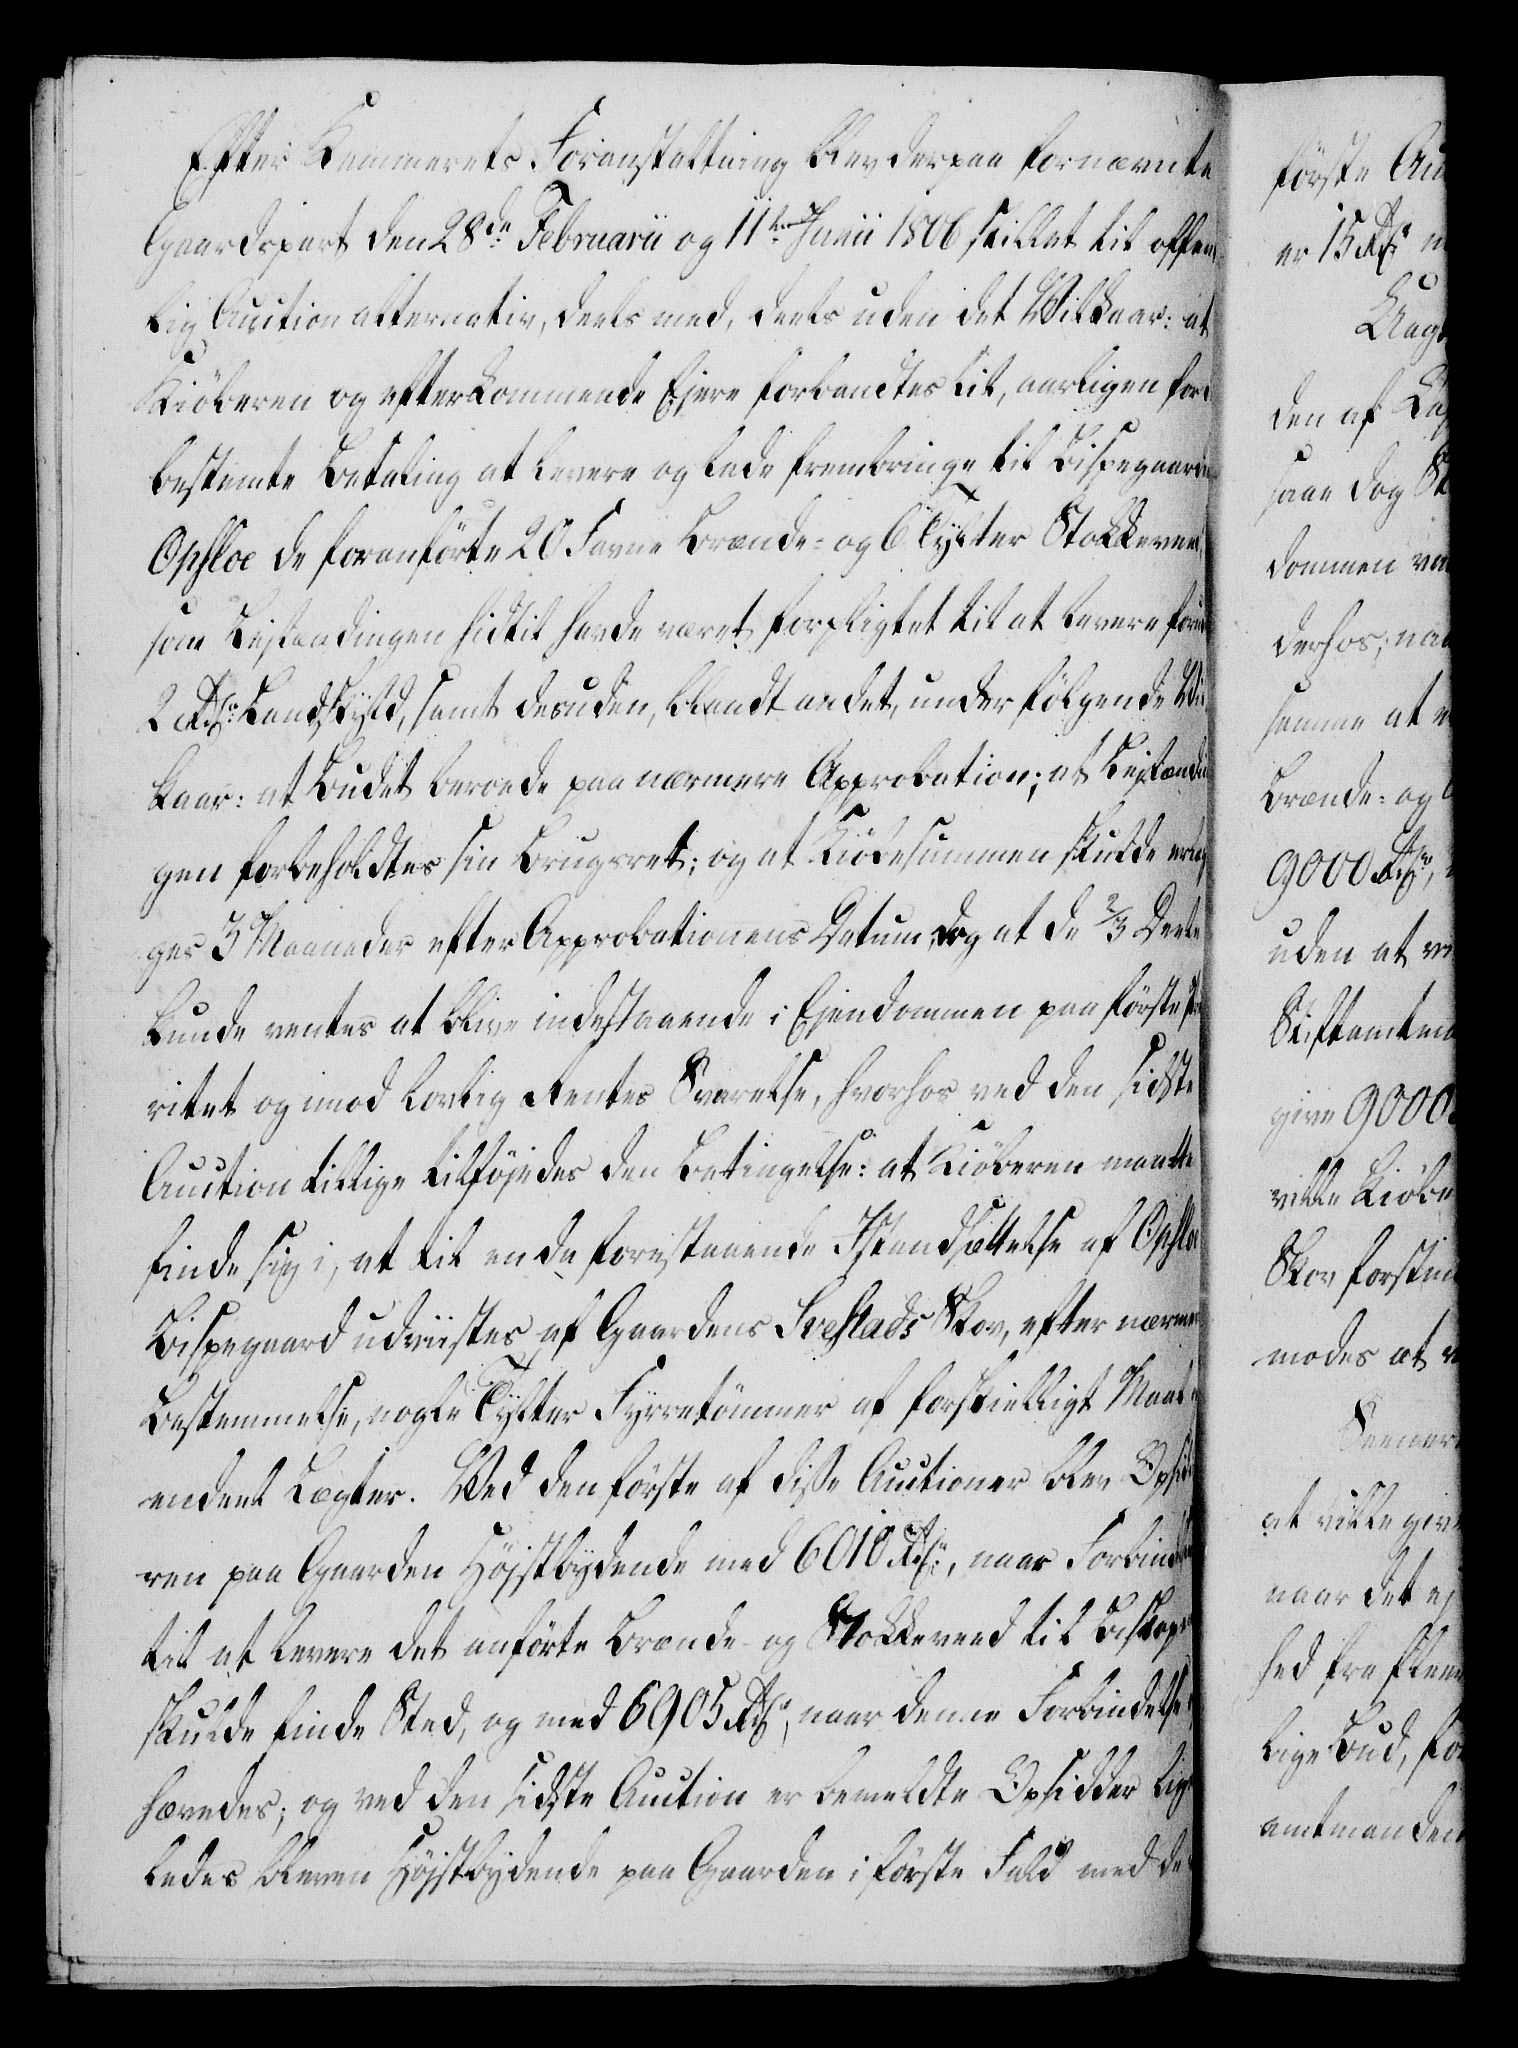 Efter Kammerets Foranstaltning blev derpaa fornævnte
Gaardspart den 28de Februarii og 11te Junii 1806 stillet til offent-
lig Auction alternativ, deels med, deels uden det Vilkaar: at
Kiöberen og efterkommende Ejere forbandtes til, aarligen for
bestemte Betaling at levere og lade frembringe til Bispegaarden
Opsloe de foranförte 20 Favne Brænde- og 6 Tylter Stokkeveed,
som Leilændingen hidtil havde været forpligtet til at levere foruden
2 Rdlr Landskyld, samt desuden, blandt andet, under fölgende Vil-
kaar: at Budet beroede paa nærmere Approbation; at Leilændin-
gen forbeholdtes sin Brugsret; og at Kiöbesummen skulde erlæg-
ges 3 Maaneder efter Approbationens Datum, dog at de 2/3 Deele
kunde ventes at blive indestaaende i Ejendommen paa förste Prio-
ritet og imod lovlig Rentes Svarelse, hvorhos ved den sidste
Auction tillige tilföjedes den Betingelse: at Kiöberen maatte
finde sig i, at til en da forestaaende Istandsættelse af Opsloe
Bispegaard udviistes af Gaardens Svestads Skov, efter nærmere
Bestemmelse, nogle Tylter Fyrretömmer af forskielligt Maal
endeel Lægter. Ved den förste af disse Auctioner blev Opsidde-
ren paa Gaarden Höjstbydende med 6010 Rdlr, naar Forbindtl
til at levere det anförte Brænde- og Stokkeveed til Biskopen
skulde finde Sted, og med 6905 Rdlr, naar denne Forbindtlse
hævedes; og ved den sidste Auction er bemeldte Opsidder lige-
ledes bleven Höjstbydende paa Gaarden i förste Fald med de
förste
er 15 Rdlr
den af
saae dog
dommen
derhos,
samme at
Brænde- og
9000 Rdlr,
uden at
Stiftamtm
give 9000
ville Kiöbe
Skov
modes at
at ville give
naar det ej
hed fra
lige Bud, for
amtmanden